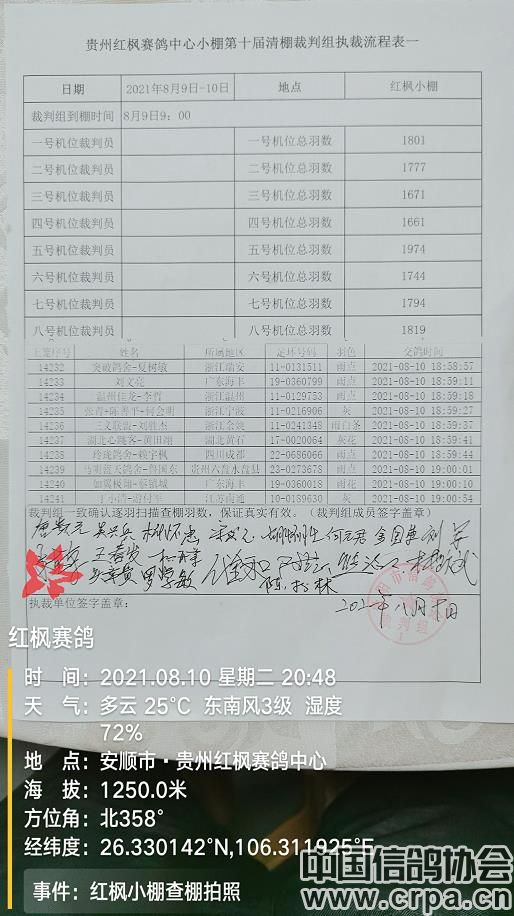 贵州红枫赛鸽中心小棚第十届清棚裁判组执裁流程表一
日期 2021年8月9日-10日 地点 红枫小棚
裁判组到棚时间 8月9日9：00
一号机位裁判员 一号机位总羽数 1801
二号机位裁判员 二号机位总羽数 1777
三号机位裁判员 三号机位总羽数 1671
四号机位裁判员 四号机位总羽数 1661
五号机位裁判员 五号机位总羽数 1974
六号机位裁判员 六号机位总羽数 1744
七号机位裁判员 七号机位总羽数 1794
八号机位裁判员 八号机位总羽数 1819
上笼序号 姓名 所属地区 足环号码 羽色 交鸽时间
14232 突破鸽舍-夏树敏 浙江瑞安 11-0131511 雨点 2021-08-10 18:58:57
14233 刘文亮 广东海丰 19-0360799 雨点 2021-08-10 18:59:11
14234 温州佳龙-李哲 浙江温州 11-0129753 雨点 2021-08-10 18:59:18
14235 张青+陈善平+何会明 浙江宁波 11-0216906 灰 2021-08-10 18:59:27
14236 三义联盟-刘胜杰 浙江余姚 11-0241348 雨白条 2021-08-10 18:59:37
14237 湖北心跳客-黄田翊 湖北黄石 17-0020064 灰花 2021-08-10 18:59:41
14238 玲珑鸽舍-赖宇枫 四川成都 22-0686066 雨点 2021-08-10 18:59:44
14239 马明蓝天鸽舍-鲁国东 贵州六盘水盘县 23-0273678 雨点 2021-08-10 19:00:01
14240 如翼极师-蔡镇城 广东海丰 19-0360018 雨花 2021-08-10 19:00:01
14241 丁小洁-游付军 江苏南通 10-0189630 灰 2021-08-10 19:00:54
裁判组一致确认逐羽扫描查棚羽数，保证真实有效。（裁判组成员签字盖章）
执裁单位签字盖章：
红枫赛鸽
时 间：2021.08.10 星期二 20:48
天 气：多云 25°C 东南风3级 湿度
72%
地 点：安顺市·贵州红枫赛鸽中心
海 拔：1250.0米
方位角：北358°
经纬度：26.330142°N,106.311925°E
事件：红枫小棚查棚拍照
中国信鸽协会
www.crpa.cn